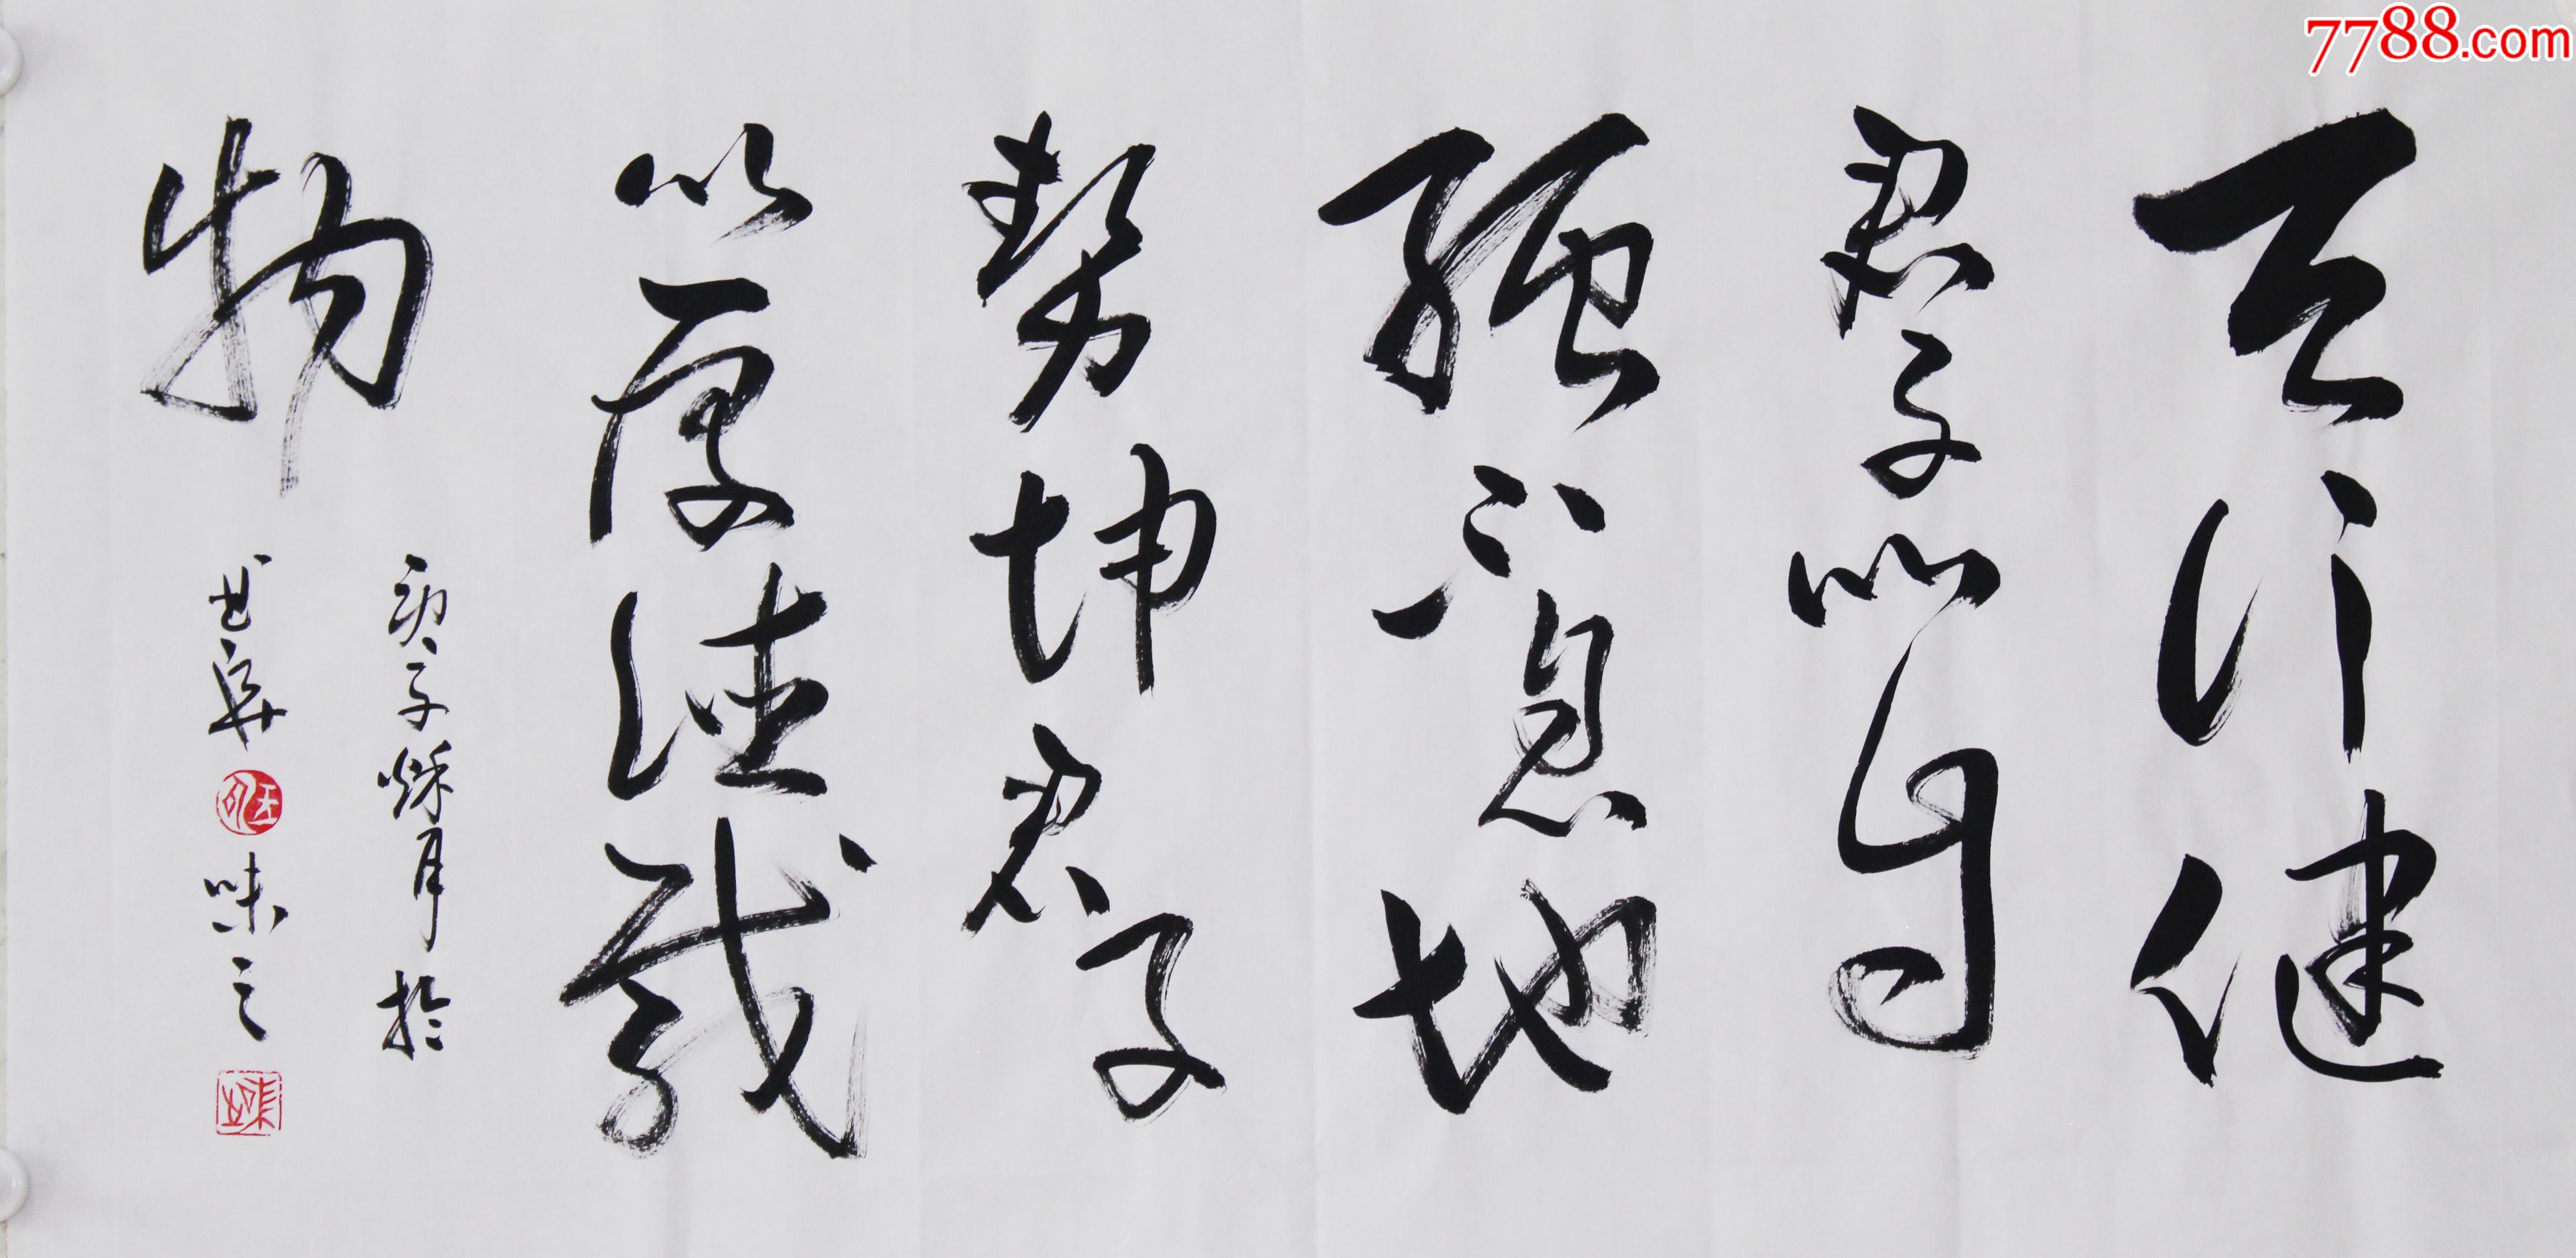 7788.com
天行健
君子以自
强不息地
势坤君子
以厚德载
物
庚子秋月於
味之